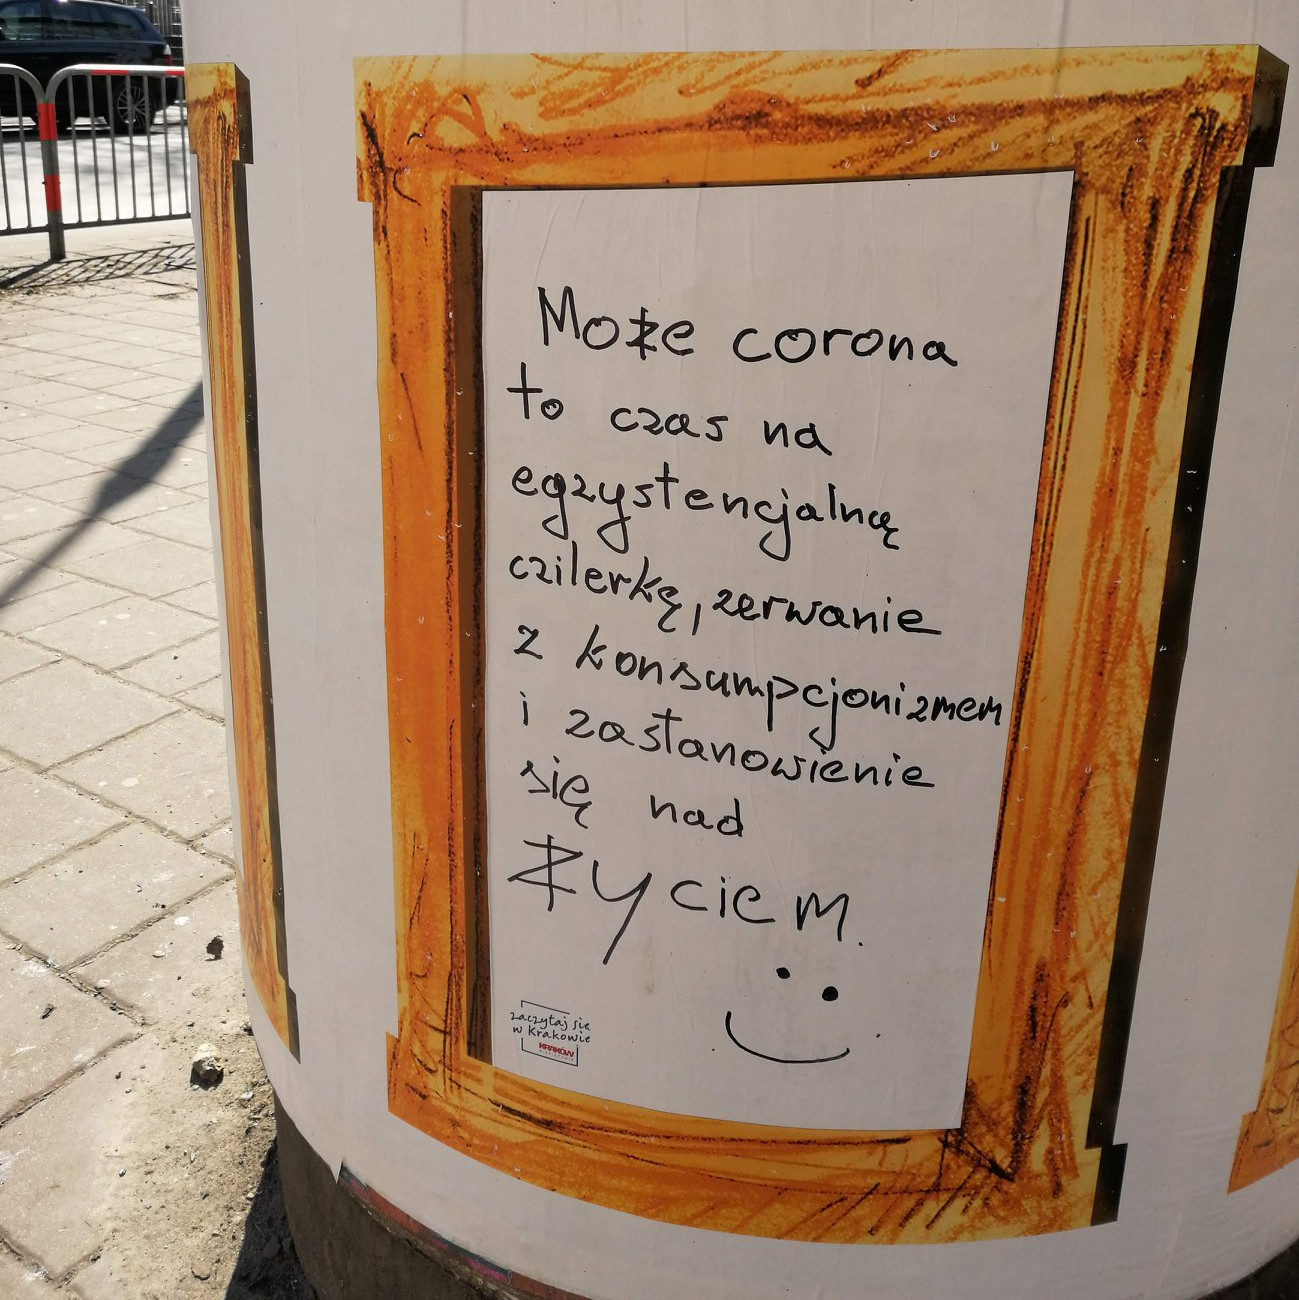 Może corona
to czas na
egzystencjalną
czilerkę, zerwanie
z konsumpcjonizmem
i zastanowienie
się nad
Życiem.
zaczytaj się
w Krakowie
KRAKÓW